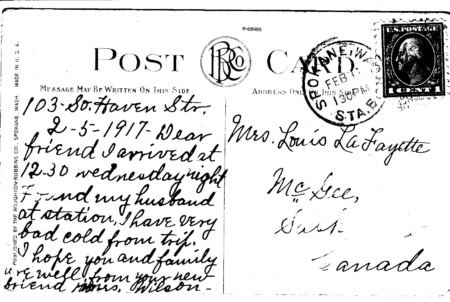 R-68966
POST CARD
RRCo
MESSAGE MAY BE WRITTEN ON THIS SIDE
ADDRESS ONLY ON THIS
SPOKANE, WASH.
FEB
130PM
STA. B.
U.S. POSTAGE
1 CENT 1
MADE IN U.S.A.
PUBLISHED BY THE ROUGHTON-ROBBINS CO., SPOKANE, WASH.
103-So. Haven Str.
2-5-1917-Dear
friend I arrived at
12.30 wednesday night
my husband
at station, I have very
bad cold from trip.
I hope you and family
are well from your new
friend Wilson-
Mrs. Louis La Fayette
McGee,
Sask
Canada